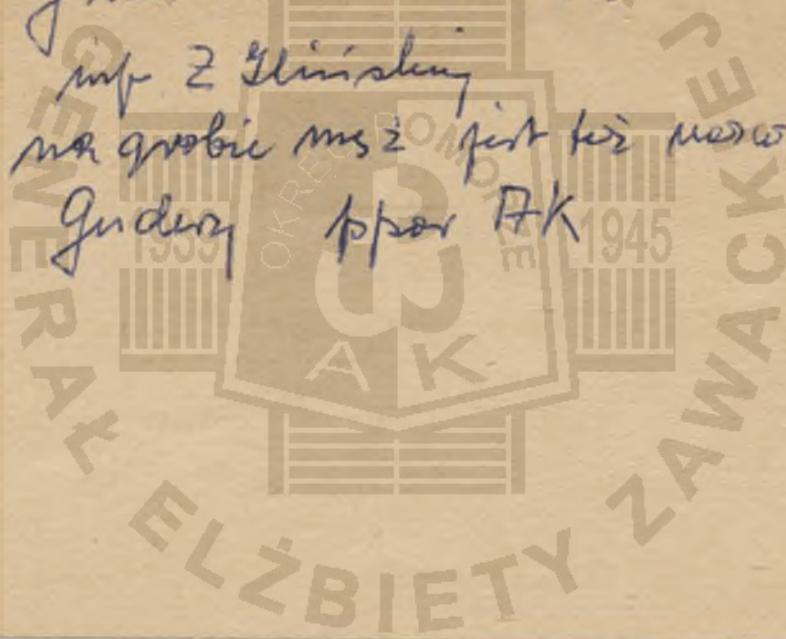 inf Z Glińskiej
na grobie męż jest też
Guderj ppor AK
GENERAŁ ELŻBIETY ZAWACKIEJ
OKRĘG POMORZE
1939 1945
AK